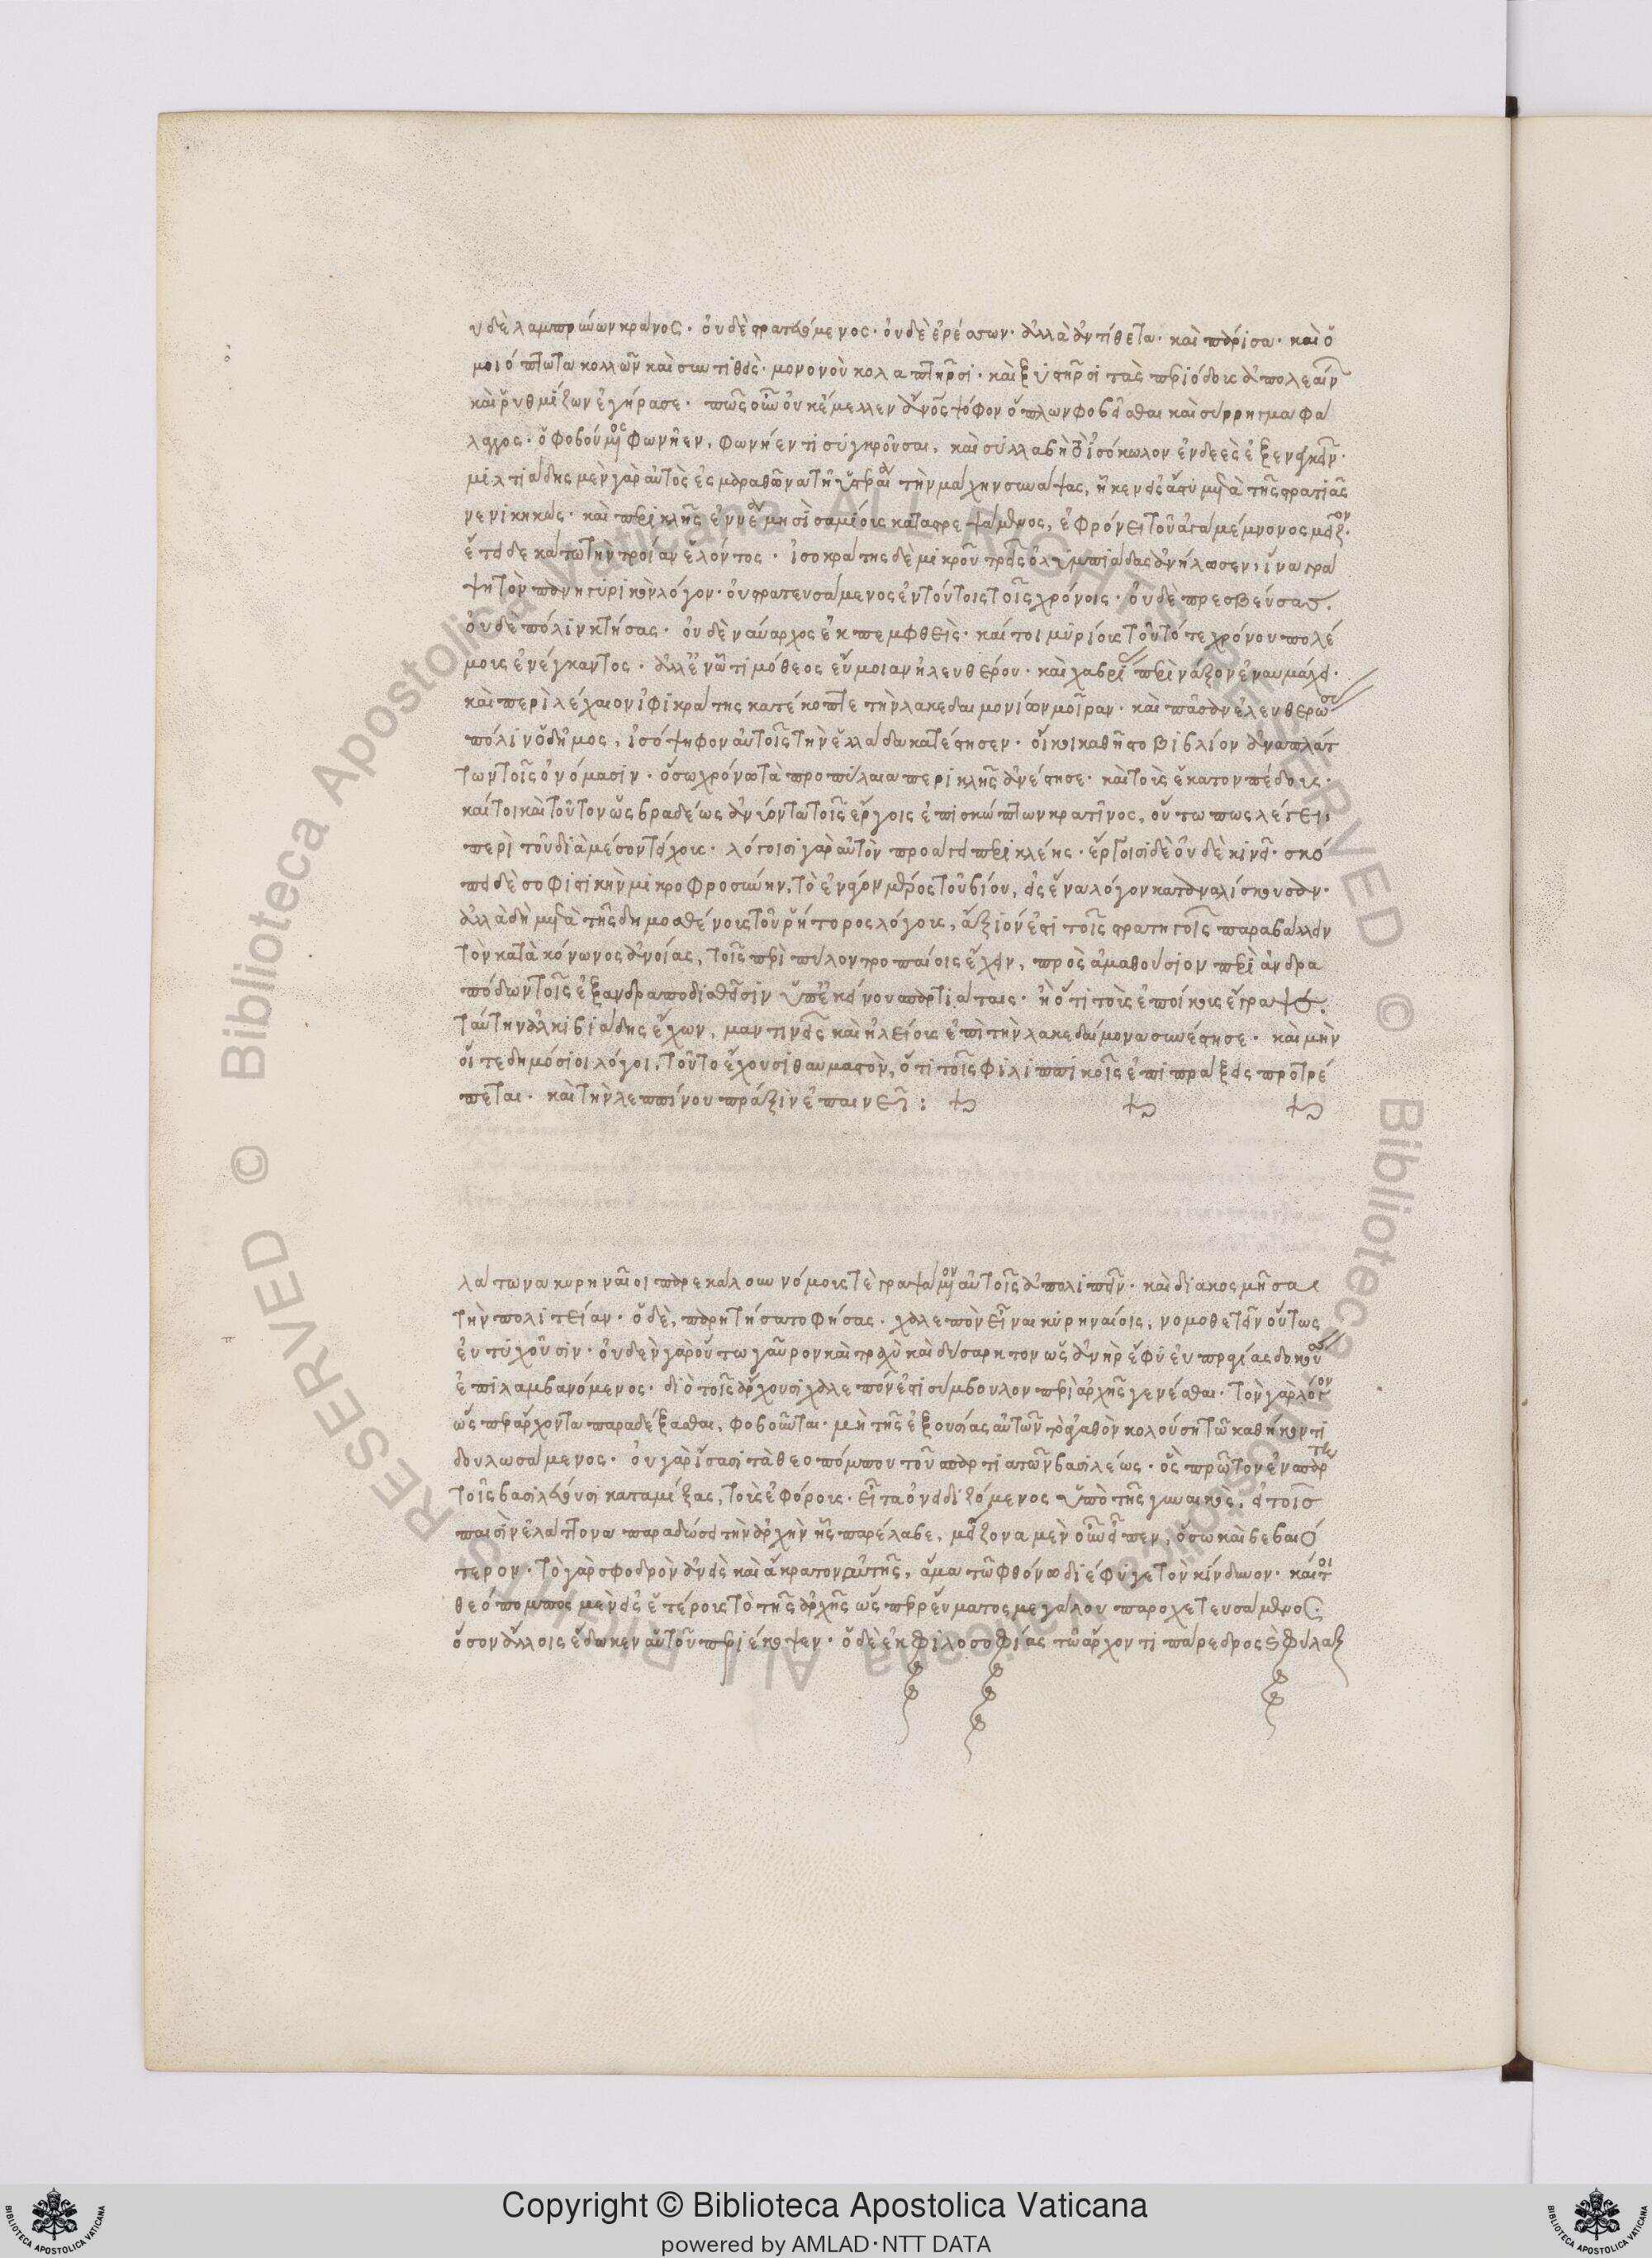 υδὲ λαμπρύνων κράνος· οὐδὲ στρατευόμενος· οὐδὲ ἐρέσσων· ἀλλὰ ἀντίθετα· καὶ πάρισα· καὶ ὁ
μοιόπτωτα κολλῶν καὶ συντιθεὶς· μονονοὺ κολαπτῆρσι· καὶ ξυστῆρσι τὰς περιόδους ἀπολεαίν
καὶ ῥυθμίζων ἐγήρασε· πῶς οὖν οὐκ ἔμελλεν ἄνος ψόφον ὅπλων φοβεῖσθαι καὶ σύρρηγμα φά
λαγγος· ὁ φοβούμενος φωνῆεν, φωνήεντι συγκροῦσαι, καὶ συλλαβῇ τὸ ἰσόκωλον ἐνδεὲς ἐξενεγκεῖν·
μιλτιάδης μὲν γὰρ αὐτὸς ἐς μαραθῶνα τῇ ὑστεραίαν τὴν μάχην συνάψας, ἧκεν εἰς ἄστυ μετὰ τῆς στρατιᾶς
νενικηκώς· καὶ περικλῆς ἐννέα μησὶ σαμίους καταστρεψάμενος, ἐφρόνει τοῦ ἀγαμέμνονος μεῖζον·
ἔτει δεκάτω τὴν τροίαν ἑλόντος· ἰσοκράτης δὲ μικροῦ τρεῖς ὀλυμπιάδας ἀνήλωσεν, ἵνα γρά
ψη τὸν πανηγυρικὸν λόγον· οὐ στρατευσάμενος ἐν τούτοις τοῖς χρόνοις· οὐδὲ πρεσβεύσας·
οὐδὲ πόλιν κτήσας· οὐδὲ ναύαρχος ἐκπεμφθεὶς· καίτοι μυρίους τοῦ τότε χρόνου πολέ
μους ἐνέγκαντος· ἀλλ' ἐν ᾧ τιμόθεος εὔμοιαν ἠλευθέρου· καὶ χαβρί περὶ νάξον ἐναυμάχει·
καὶ περὶ λέχαιον ἰφικράτης κατέκοπτε τὴν λακεδαιμονίων μοῖραν· καὶ πᾶσαν ἐλευθερώσ
πόλιν ὁ δῆμος, ἰσόψηφον αὐτοῖς τὴν ἑλλάδα κατέστησεν· οἴκοι καθῆστο βιβλίον ἀναπλάτ
των τοῖς ὀνόμασιν· ὅσω χρόνω τὰ προπύλαια περικλῆς ἀνέστησε· καὶ τοὺς ἑκατονπέδους·
καίτοι καὶ τοῦτον ὡς βραδέως ἀνύοντα τοῖς ἔργοις ἐπισκώπτων κρατῖνος, οὕτω πως λέγει,
περὶ τοῦ διὰ μέσον τείχους· λόγοισι γὰρ αὐτὸν προάγει περικλέης· ἔργοισι δὲ οὐδὲ κινεῖ· σκό
πει δὲ σοφιστικὴν μικροφροσύνην, τὸ ἔνατον μέρος τοῦ βίου, εἰς ἕνα λόγον καταναλίσκουσαν·
ἀλλὰ δὴ μετὰ τῆς δημοσθένους τοῦ ῥήτορος λόγους, ἄξιόν ἐστι τοῖς στρατηγοῖς παραβάλλειν
τὸν κατὰ κόνωνος ἀνοίας, τοῖς περὶ πύλον τροπαίοις εἶχεν, πρὸς ἀμαθούσιον περὶ ἀνδρα
πόδων τοῖς ἐξανδραποδισθεῖσιν ὑπ' ἐκείνου σπαρτιάταις· ἢ ὅτι τοὺς ἐποίκους ἔγραψε·
ταύτην ἀλκιβιάδης ἔχων, μαντινεῖς καὶ ἠλείους ἐπὶ τὴν λακεδαίμονα συνέστησε· καὶ μὴν
οἵ τε δημόσιοι λόγοι, τοῦτο ἔχουσι θαυμαστὸν, ὅτι τοῖς φιλιππικοῖς ἐπὶ πράξεις προτρέ
πεται· καὶ τὴν λεπτίνου πρᾶξιν ἐπαινεῖ:
λάτωνα κυρηναῖοι παρεκάλουν νόμους τὲ γραψάμενον αὐτοῖς ἀπολιπεῖν· καὶ διακοσμῆσαι
τὴν πολιτείαν· ὁ δὲ, παρητήσατο φήσας· χαλεπὸν εἶναι κυρηναίοις, νομοθετεῖν οὕτως
εὐτυχοῦσιν· οὐδὲν γὰρ οὕτω γαῦρον καὶ τραχὺ καὶ δύσαρκτον ὡς ἀνὴρ ἔφυ εὐπραγίας δοκούσ
ἐπιλαμβανόμενος· διὸ τοῖς ἄρχουσι χαλεπόν ἐστι σύμβουλον περὶ ἀρχῆς γενέσθαι· τὸν γὰρ λόγον
ὡς περ ἄρχοντα παραδέξασθαι, φοβοῦνται· μὴ τῆς ἐξουσίας αὐτῶν τὸ ἀγαθὸν κολούση τῶ καθήκοντι
δουλωσάμενος· οὐ γὰρ ἴσασι τὰ θεοπόμπου τοῦ σπαρτιατῶν βασιλέως· ὃς πρῶτον ἐν σπάρτη
τοῖς βασιλεύουσι καταμίξας, τοὺς ἐφόρους· εἶτα ὀνειδιζόμενος ὑπὸ τῆς γυναικὸς, εἰ τοῖς
παισὶν ἐλάττονα παραδώσει τὴν ἀρχὴν ἧς παρέλαβε, μείζονα μὲν οὖν εἶπεν, ὅσω καὶ βεβαιό
τερον· τὸ γὰρ σφοδρὸν ἀνεὶς καὶ ἄκρατον αὐτῆς, ἅμα τῶ φθόνω διέφυγε τὸν κίνδυνον· καίτοι
θεόπομπος μὲν εἰς ἑτέρους τὸ τῆς ἀρχῆς ὡς περ ῥεύματος μεγάλου παροχετευσάμενος·
ὅσον ἄλλοις ἔδωκεν αὑτοῦ περιέκοψεν· ὁ δὲ ἐκ φιλοσοφίας τῶ ἄρχοντι πάρεδρος καὶ φύλαξ
Copyright © Biblioteca Apostolica Vaticana
powered by AMLAD·NTT DATA